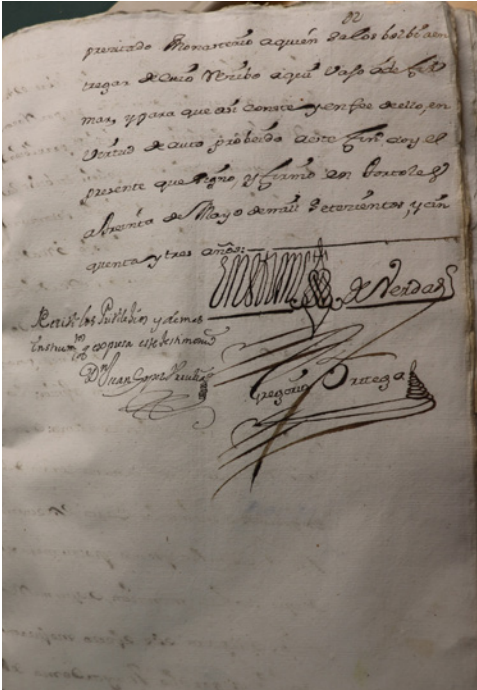 prenotado Monasterio a quien se los bolbi a en
tregar de cuio Recibo aqui vajo ha de fir
mar, y para que asi conste y en fee de ello, en
virtud de auto probeido a este fin doy el
presente que signo, y firmo en
a treinta de Mayo de mill setecientos, y cin
quenta y tres años:
en testimonio de Verdad
Recivi los Privilegios y demas
instrumtos q expresa este testimonio
Dn Juan
Gregorio Ortega